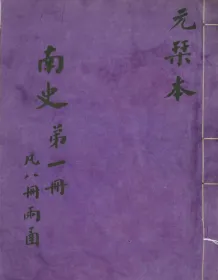 元槧本
南史
第一冊
凡八冊兩函